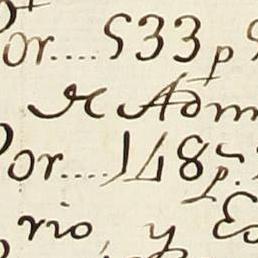 Por.... 533 p
de Adm
Por.... 1487 p.
rio, y Es